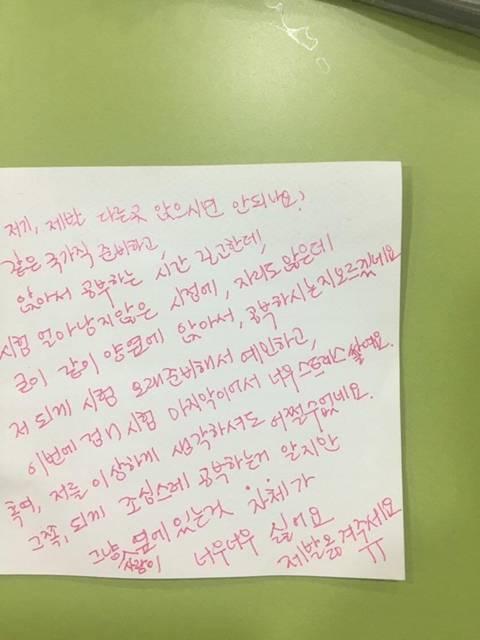 저기, 제발 다른곳 앉으시면 안되나요?
같은 국가직 준비하고,
앉아서 공부하는 시간 길고한데,
시험 얼마남지않은 시점에, 자리도많은데
굳이 같이 양옆에 앉아서, 공부하시는지모르겠네요
저 되게 시험 오래준비해서 예민하고,
이번에 경기 시험 마지막이어서 너무스트레스쌓여요.
혹여, 저를 이상하게 생각하셔도 어쩔수없네요.
그쪽, 되게 조심스레 공부하는거 알지만
그냥 사람이 옆에 있는것 자체가
너무너무 싫어요
제발옮겨주세요
ㅠ